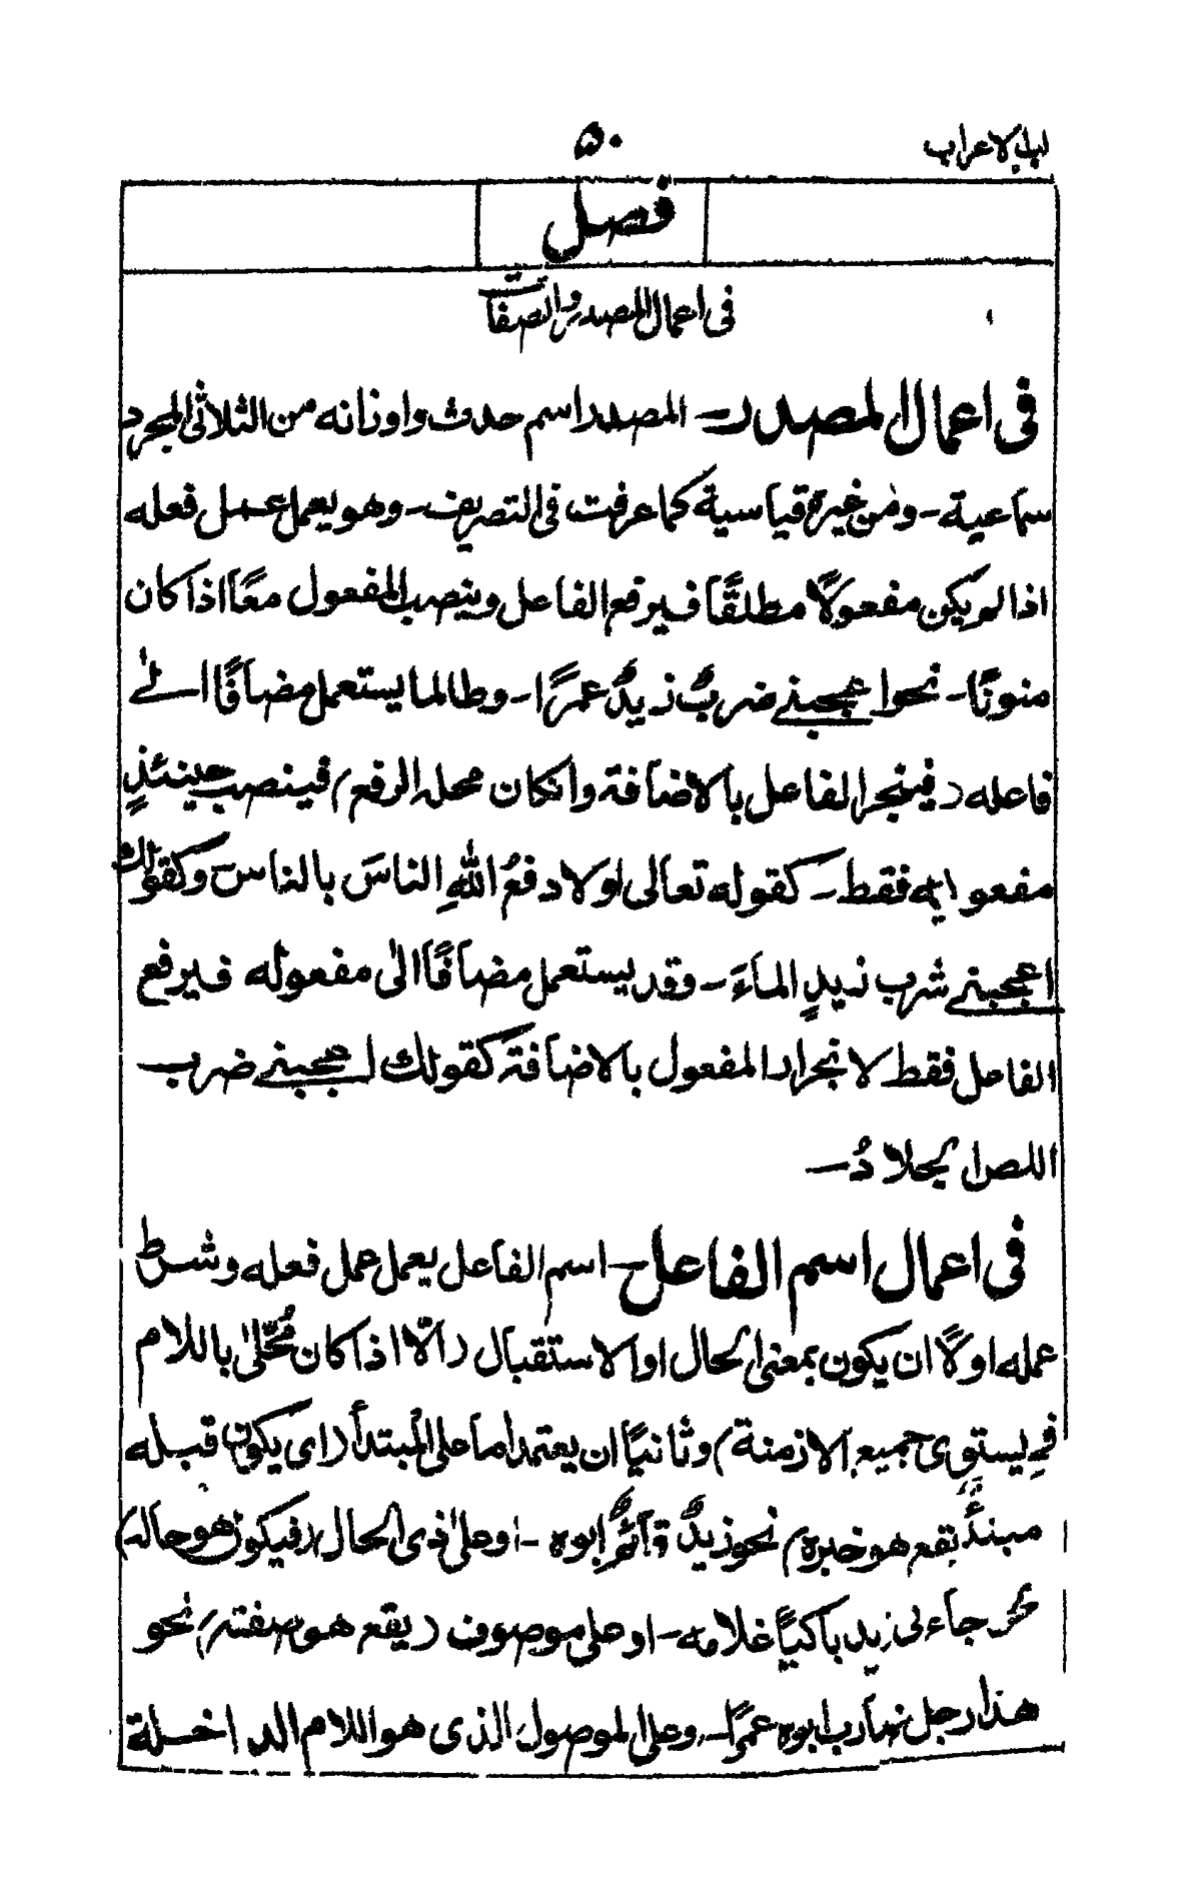 لباب الاعراب
۵۰
فصل
فی اعمال المصدر والصفات
فی اعمال المصدر - المصدر اسم حدث واوزانه من الثلاثی المجرد
سماعیة - ومن غیره قیاسیة کما عرفت فی التصریف - وهو یعمل عمل فعله
اذا لم یکن مفعولًا مطلقًا فیرفع الفاعل وینصب المفعول معًا اذا کان
منونًا - نحو اعجبنی ضربٌ زیدٌ عمرًا - وطالما یستعمل مضافًا الی
فاعله (فینجر الفاعل بالاضافة وانکان محله الرفع) فینصب حینئذٍ
مفعوله فقط - کقوله تعالی لولا دفعُ اللهِ الناسَ بالناس وکقولك
اعجبنی شرب زیدٍ الماءَ - وقد یستعمل مضافًا الی مفعوله فیرفع
الفاعل فقط لانجرار المفعول بالاضافة کقولك اعجبنی ضرب
اللص الجلادُ -
فی اعمال اسم الفاعل - اسم الفاعل یعمل عمل فعله وشرط
عمله اولًا ان یکون بمعنی الحال او الاستقبال (الّا اذا کان مُحلّیٰ باللام
فیستوی جمیع الازمنة) وثانیًا ان یعتمد اما علی المبتدأ (ای یکون قبله
مبتدأ یقع هو خبره) نحو زیدٌ قائمٌ ابوه - او علیٰ ذی الحال (فیکون هو حاله)
نحو جاءنی زید باکیًا غلامه - او علی موصوف (یقع هو صفته) نحو
هذا رجل ضارب ابوه عمرًا - وعلی الموصول الذی هو اللام الداخلة